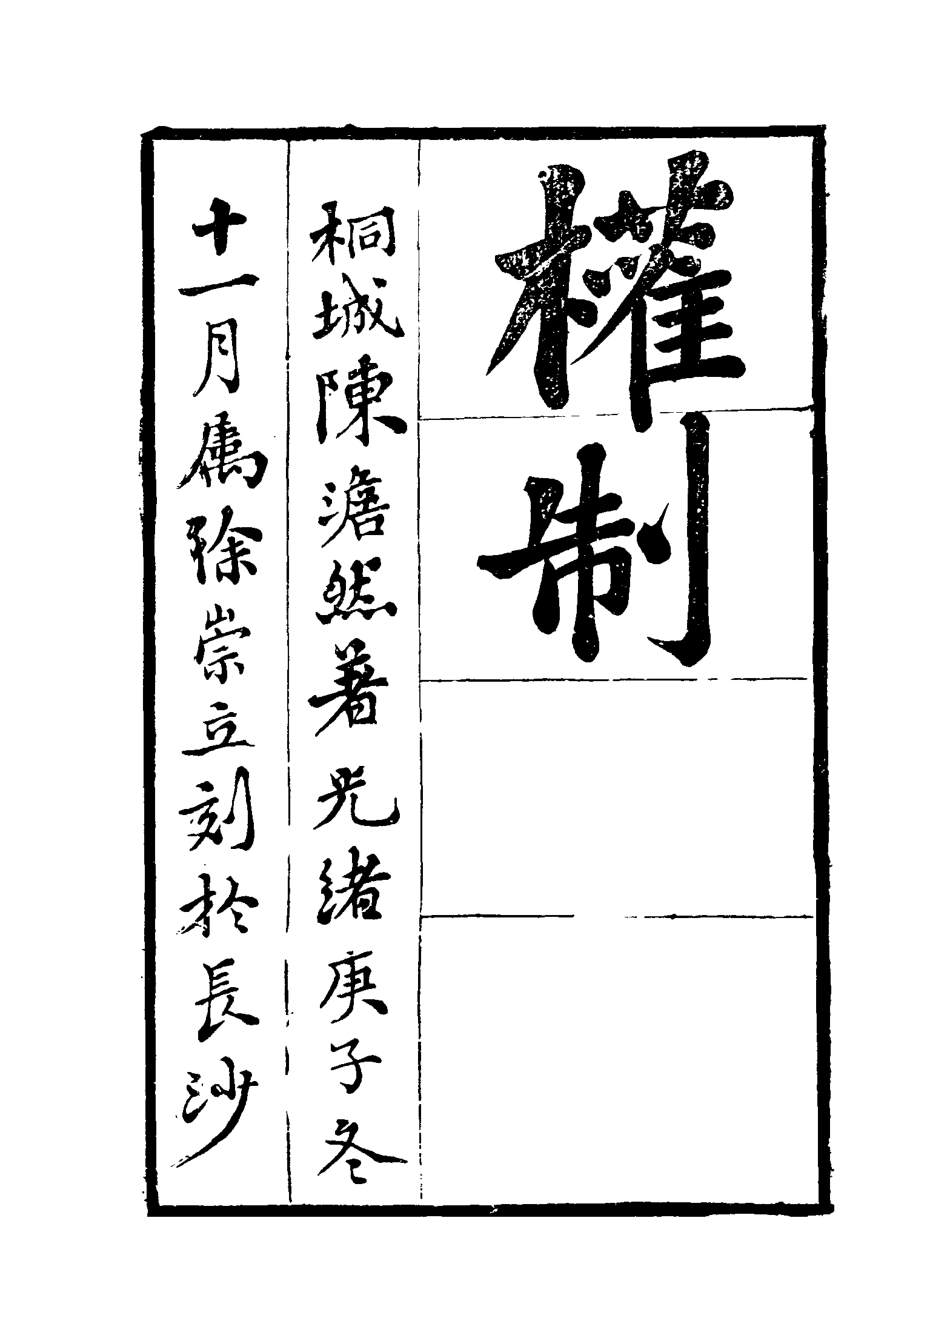 權制
桐城陳澹然著光緒庚子冬
十一月属徐崇立刻於長沙